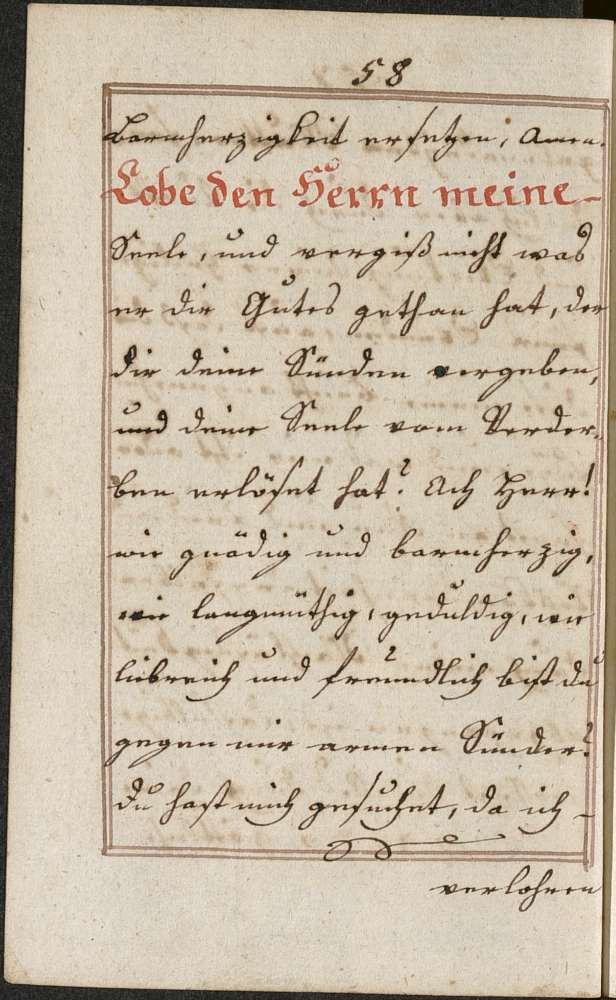 58
Barmherzigkeit ersetzen, Amen.
Lobe den Herrn meine-
Seele, und vergiß nicht was
er dir Gutes gethan hat, der
dir deine Sünden vergeben,
und deine Seele vom Verder-
ben erlöset hat? Ach Herr!
wie gnädig und barmherzig,
wie langmüthig, geduldig, wie
liebreich und freundlich bist du
gegen mir armen Sünder?
Du hast mich gesuchet, da ich -
verlohren